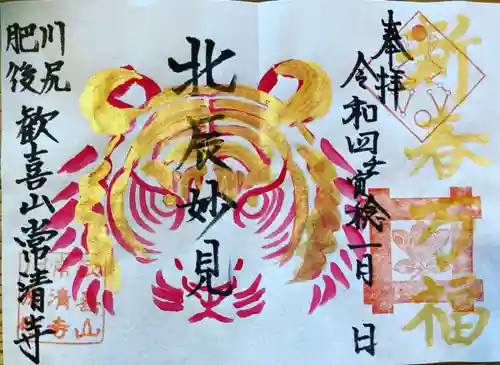 新春万福
奉拝
令和四 稔一月 日
北辰妙見
川尻
肥後
歓喜山常清寺
歓喜山
常清寺